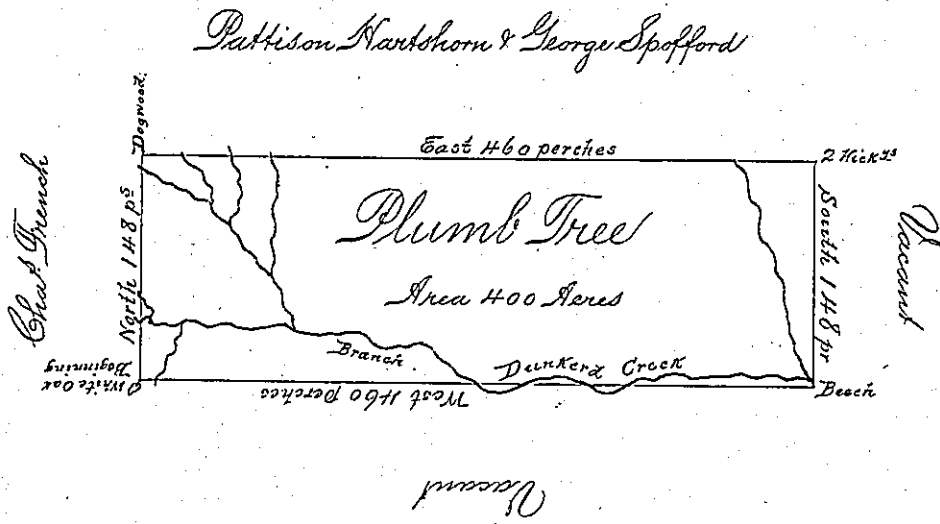 Pattison Hartshorn & George Spofford
Dogwood.
East 460 perches
2 Hickys
Chas. French
North 148 ps
Plumb Tree
South 148 pr
Vacant
Area 400 Acres
Branch
Dunkerd Creek
White Oak
Beginning
West 460 perches
Beech
Vacant